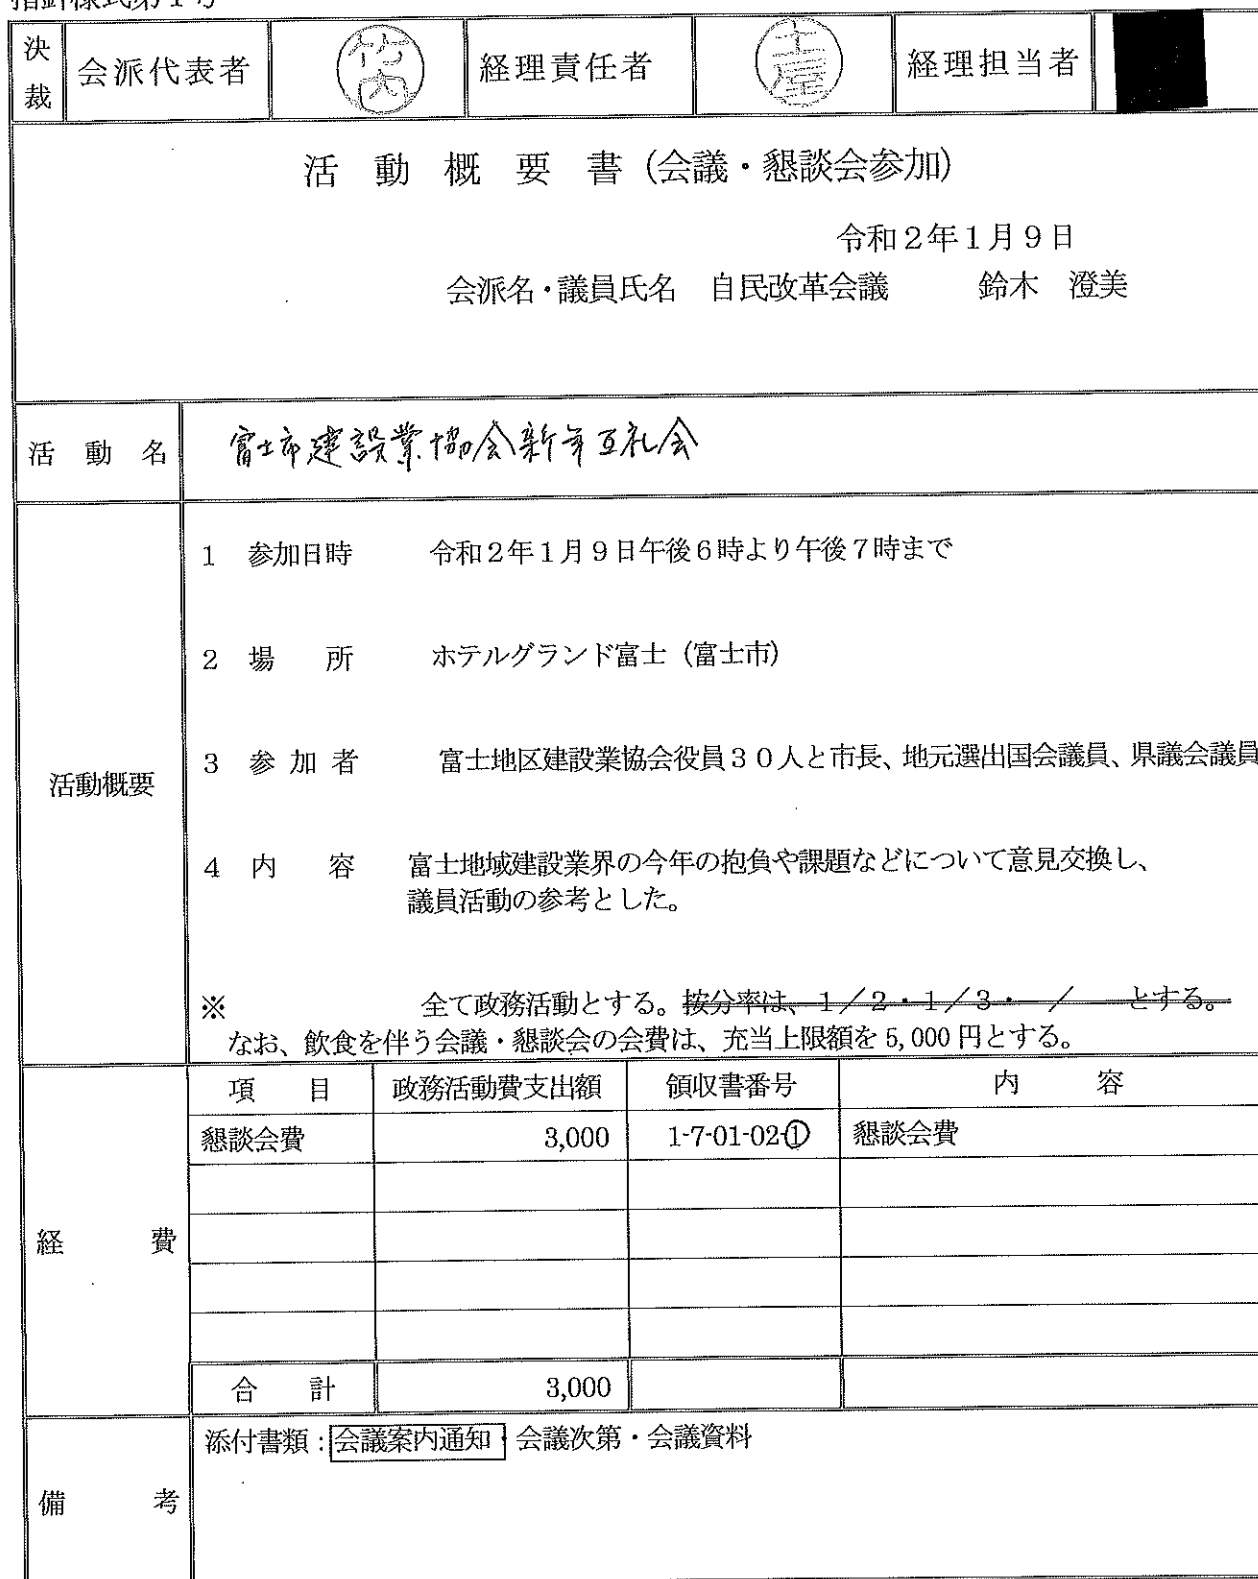 指針様式第1号
決裁 会派代表者 竹内 経理責任者 土屋 経理担当者
活動概要書（会議・懇談会参加）
令和2年1月9日
会派名・議員氏名 自民改革会議 鈴木 澄美
活動名 富士市建設業協会新年互礼会
活動概要
1 参加日時 令和2年1月9日午後6時より午後7時まで
2 場所 ホテルグランド富士（富士市）
3 参加者 富士地区建設業協会役員30人と市長、地元選出国会議員、県議会議員
4 内容 富士地域建設業界の今年の抱負や課題などについて意見交換し、
議員活動の参考とした。
※ 全て政務活動とする。按分率は、1／2・1／3・ ／ とする。
なお、飲食を伴う会議・懇談会の会費は、充当上限額を5,000円とする。
経費
項目 政務活動費支出額 領収書番号 内容
懇談会費 3,000 1-7-01-02-① 懇談会費
合計 3,000
備考
添付書類：会議案内通知・会議次第・会議資料